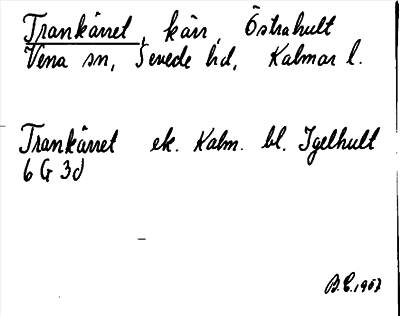 Trankärret, kärr, Östrahult
Vena sn, Sevede hd, Kalmar l.
Trankärret ek. Kalm. bl. Igelhult
6 G 3d
B.E. 1967